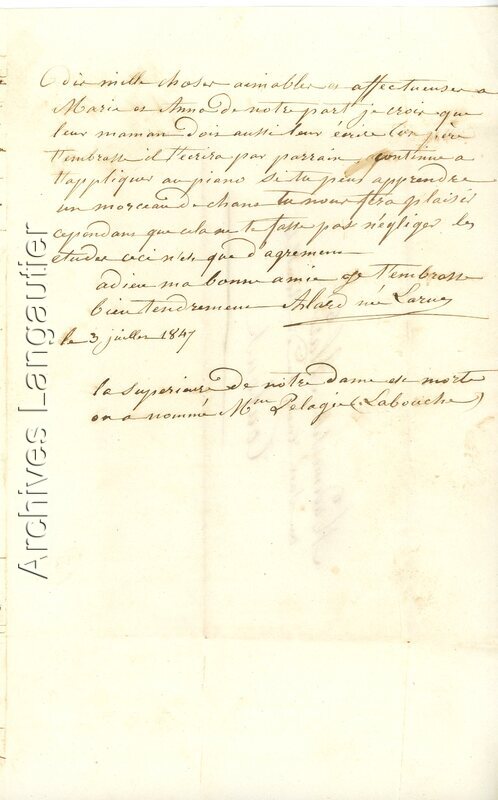 dis mille choses aimables et affectueuses a
Marie et Anna de notre part, je crois que
leur maman dois aussi leur écrire ton père
t'embrasse il t'ecrira par parrain, continue a
t'appliquer au piano si tu peus apprendre
un morceau de chant tu nous fera plaisir
cependant que cela ne te fasse pas négliger les
études ceci n'est que d'agrement
adieu ma bonne amie je t'embrasse
bien tendrement Alard née Larue
le 3 juillet 1847
la superieure de notre dame est morte
on a nommé Mme Pelagie (Labouche)
Archives Langautier